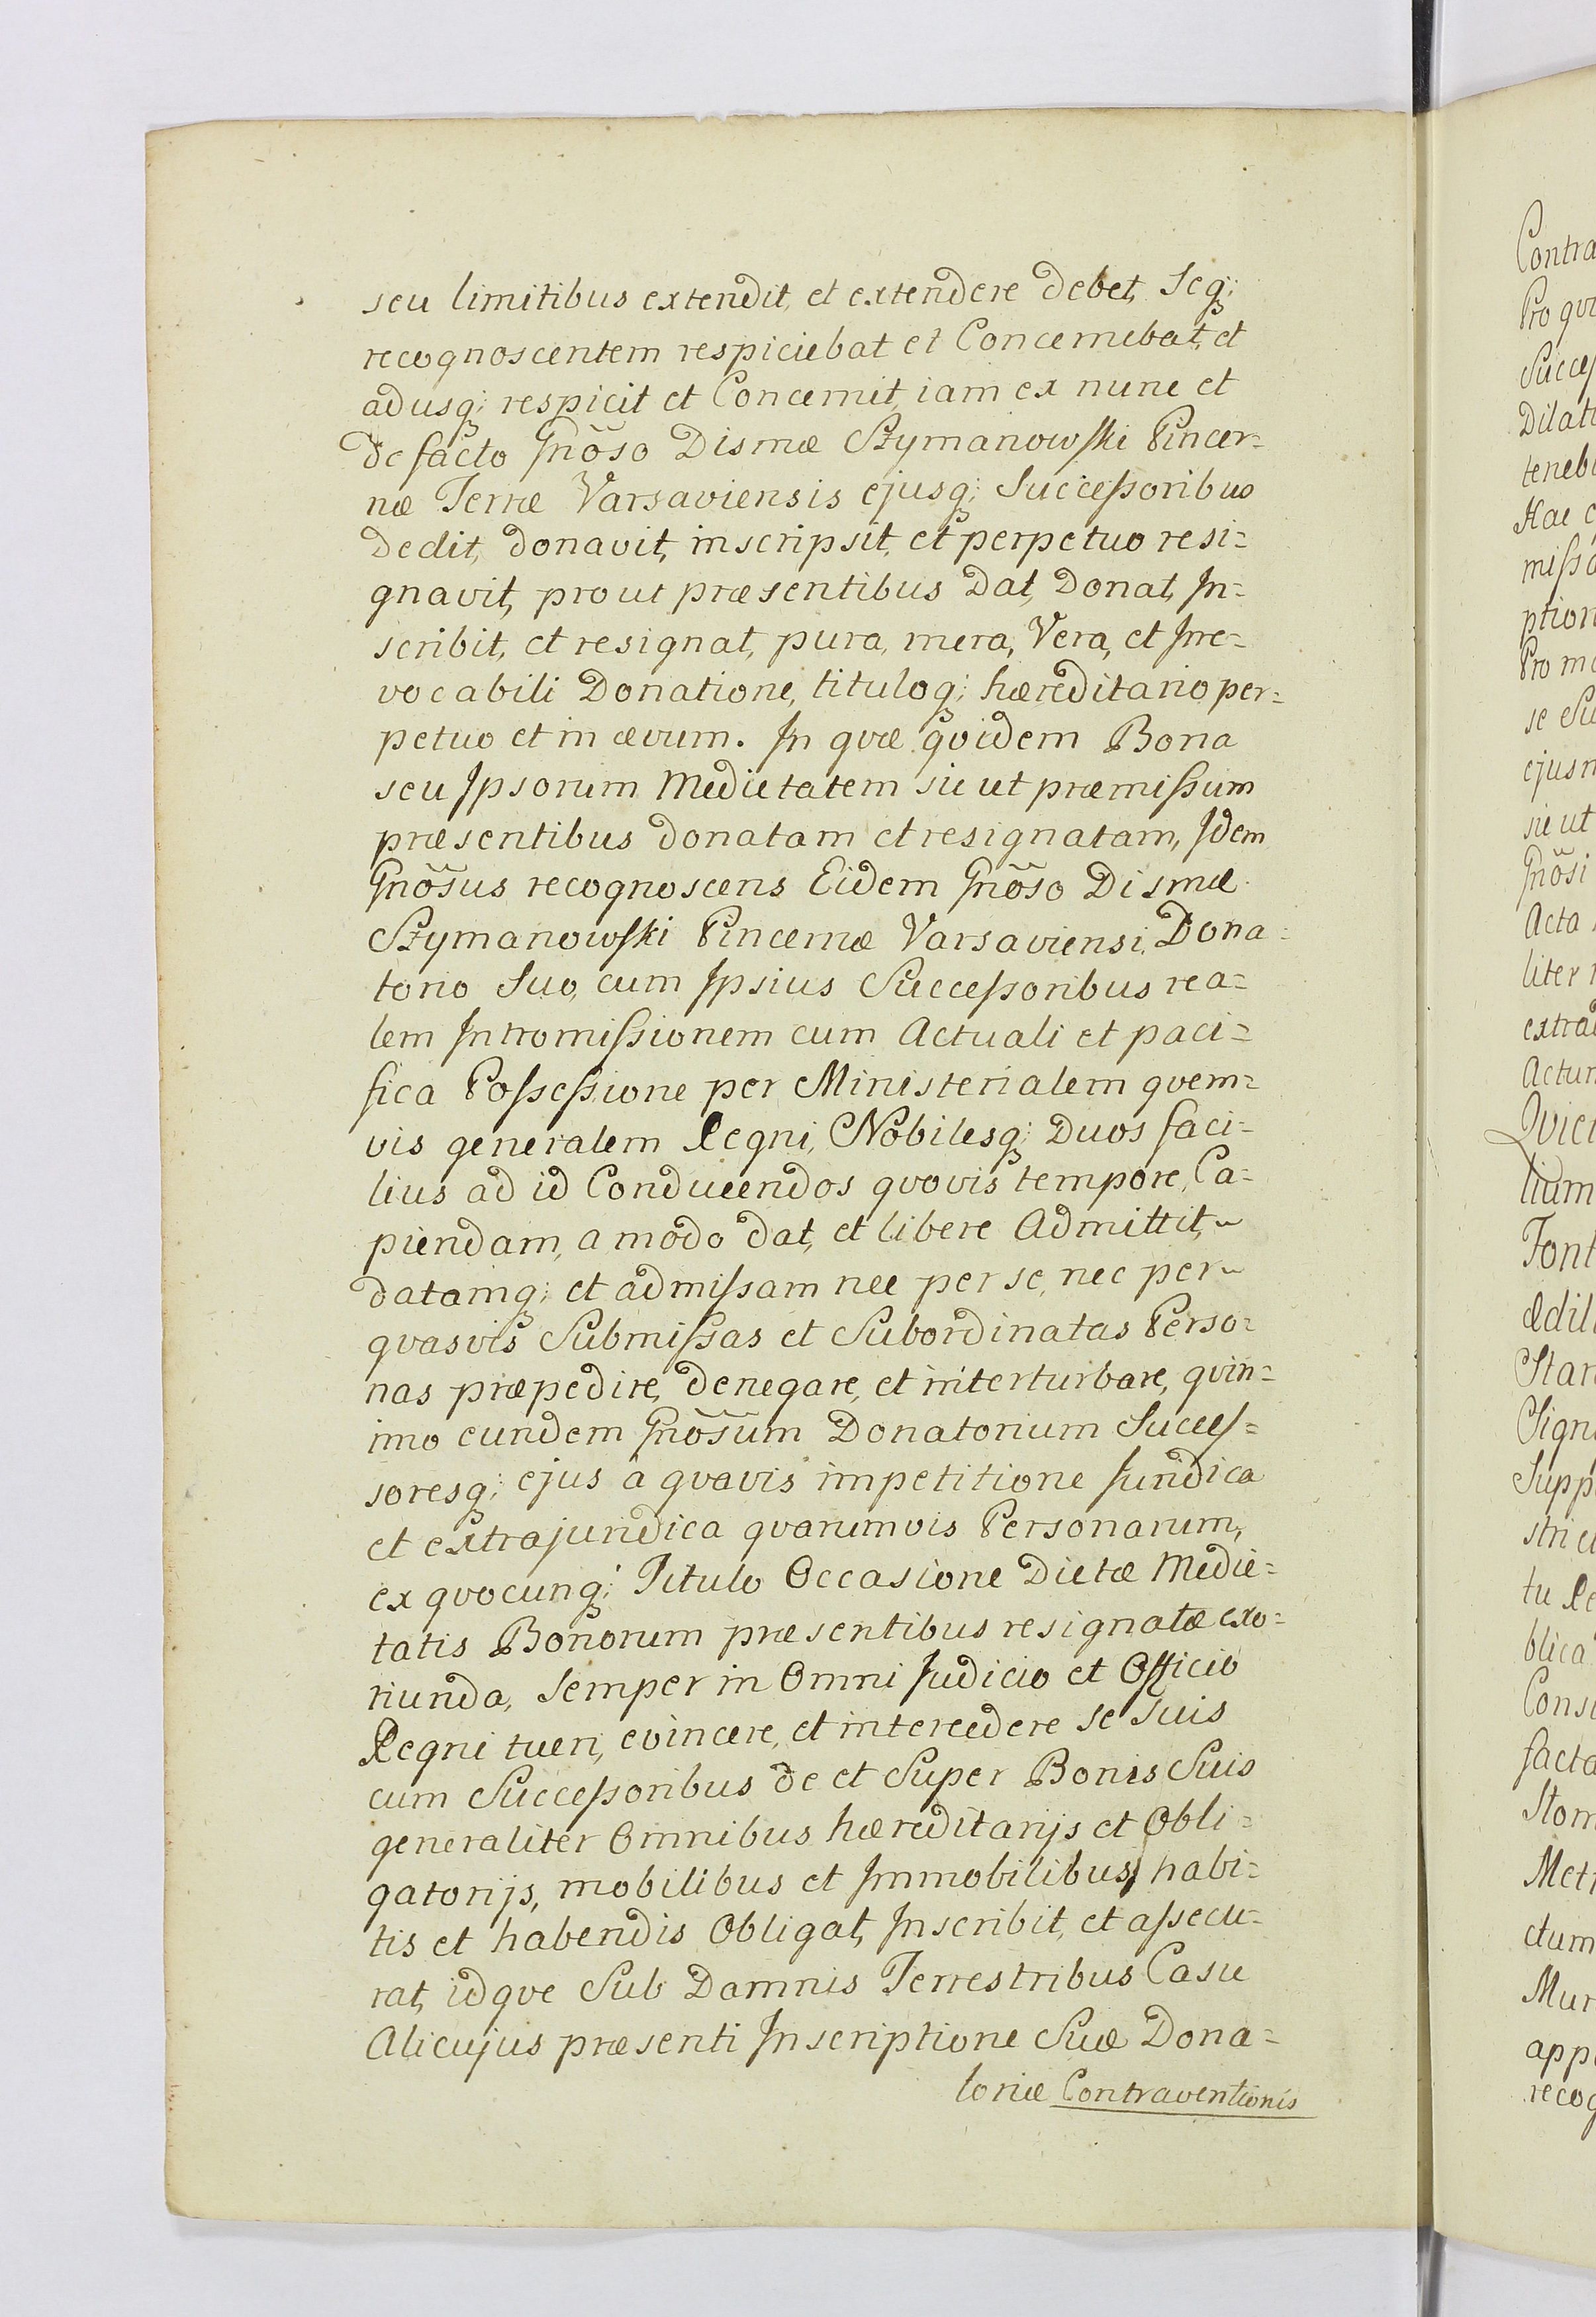 seu limitibus extendit, et extendere debet, Seq;
recognoscentem respiciebat et Concernebat, et
adusq; respicit et Concernit, iam ex nunc et
de facto Gnõso Dismæ Szymanowſki Pincer=
næ Terræ Varsaviensis ejusq; Succeſsoribus
dedit, donavit, inscripsit, et perpetuo resi=
gnavit, prout præsentibus Dat, Donat, In=
scribit, et resignat, pura, mera, Vera, et Irre=
vocabili Donatione, tituloq; hæreditario per=
petuo et in ævum. In qvæ qvidem Bona
seu Ipsorum Medietatem sicut præmiſsum
præsentibus donatam et resignatam, Idem
Gnõsus recognoscens Eidem Gnõso Dismæ
Szymanowſki Pincernæ Varsaviensi Dona=
torio Suo, cum Ipsius Succeſsoribus rea=
lem Intromiſsionem cum Actuali et paci=
fica Poſseſsione per Ministerialem qvem=
vis generalem Regni, Nobilesq; Duos faci=
lius ad id Conducendos qvovis tempore, Ca=
piendam, a modo dat, et libere Admittit,
datamq; et admiſsam nec per se, nec per
qvasvis Submiſsas et Subordinatas Perso=
nas præpedire, denegare, et interturbare, qvin=
imo eundem Gnõsum Donatorium Succeſ=
soresq; ejus à qvavis impetitione Juridica
et extrajuridica qvarumvis Personarum,
ex qvocunq; Titulo Occasione Dictæ Medie=
tatis Bonorum præsentibus resignatæ exo=
riunda, Semper in Omni Judicio et Officio
Regni tueri, evincere, et intercedere se Suis
cum Succeſsoribus de et Super Bonis Suis
generaliter Omnibus hæreditarijs et Obli=
gatorijs, mobilibus et Immobilibus, habi=
tis et habendis Obligat, Inscribit, et aſsecu=
rat, idqve Sub Damnis Terrestribus Casu
Alicujus præsenti Inscriptione Suæ Dona=
toriæ Contraventionis